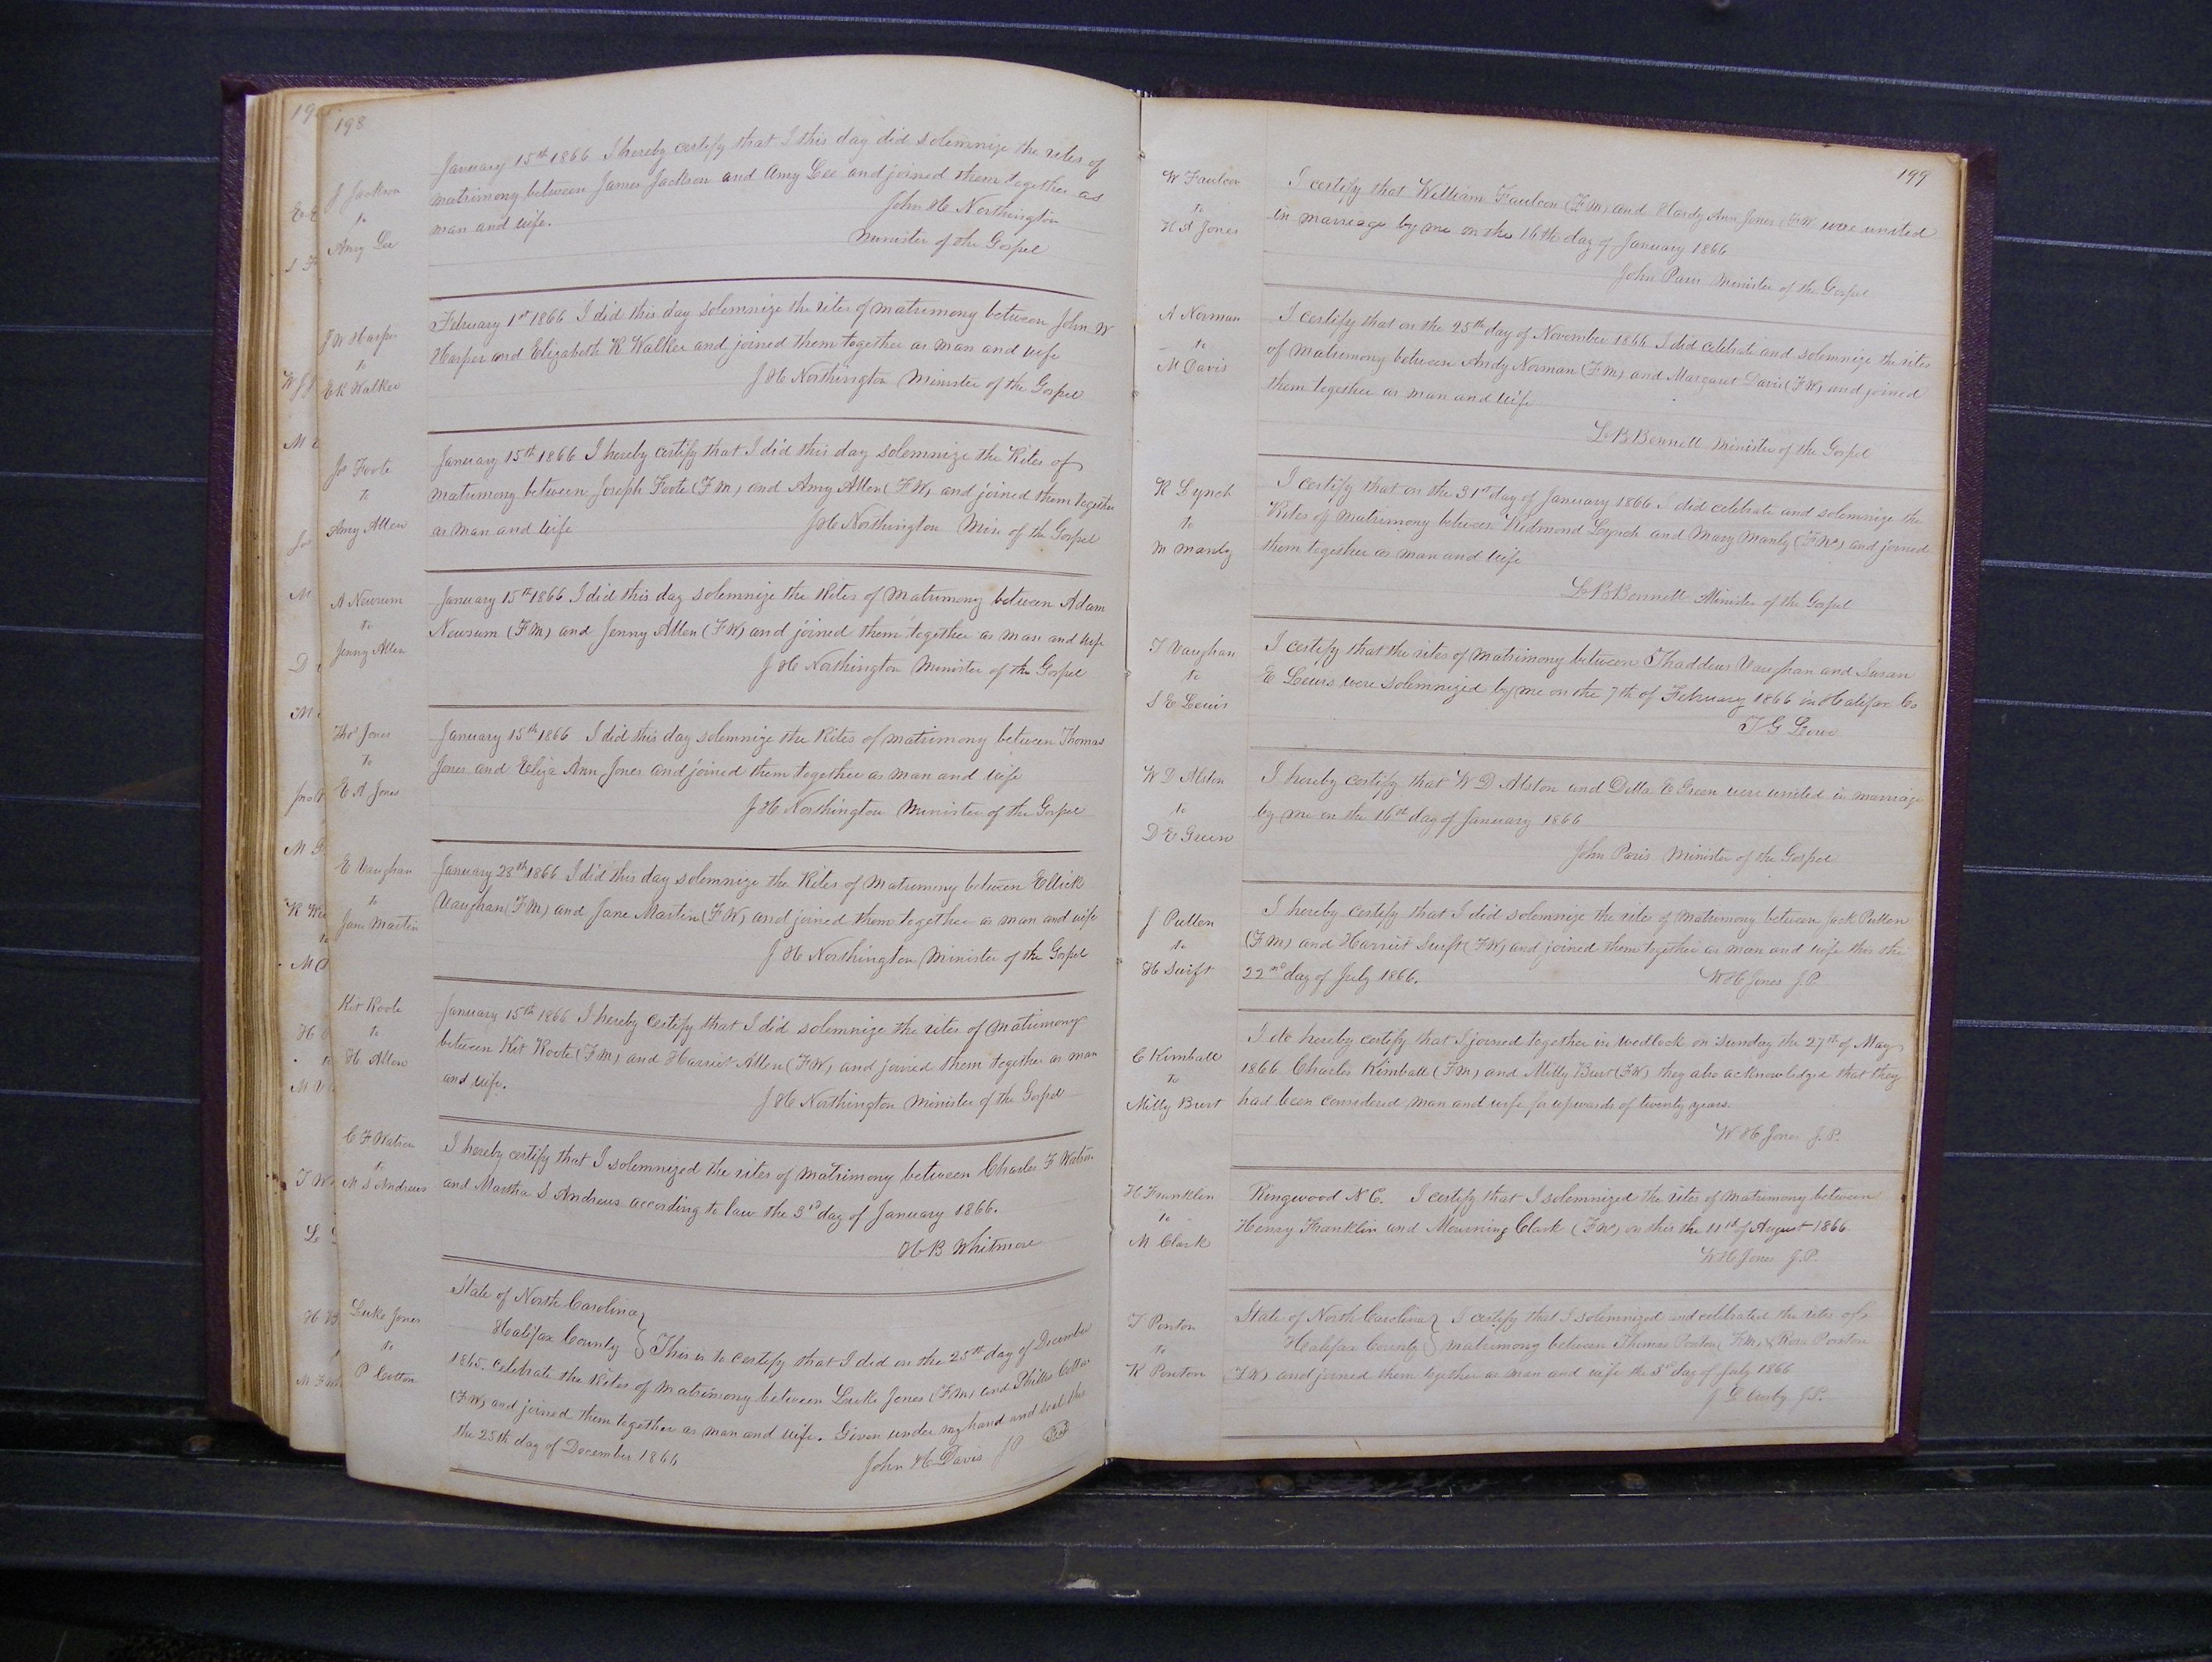 198
J Jackson
to
Amy Lee
January 15th 1866 I hereby certify that I this day did solemnize the rites of
matrimony between James Jackson and Amy Lee and joined them together as
man and wife.
John H Northington
Minister of the Gospel
J W Harper
to
E K Walker
February 1st 1866 I did this day solemnize the rites of matrimony between John W
Harper and Elizabeth K Walker and joined them together as man and wife
J H Northington Minister of the Gospel
Jos Foote
to
Amy Allen
January 15th 1866 I hereby certify that I did this day solemnize the Rites of
matrimony between Joseph Foote (F M) and Amy Allen (F W) and joined them together
as man and wife
J H Northington Min of the Gospel
A Newsum
to
Jenny Allen
January 15th 1866 I did this day solemnize the Rites of Matrimony between Adam
Newsum (F M) and Jenny Allen (F W) and joined them together as man and wife
J H Northington Minister of the Gospel
Thos Jones
to
E A Jones
January 15th 1866 I did this day solemnize the Rites of matrimony between Thomas
Jones and Eliza Ann Jones and joined them together as man and wife
J H Northington Minister of the Gospel
E Vaughan
to
Jane Martin
January 28th 1866 I did this day solemnize the Rites of Matrimony between Ellick
Vaughan (F M) and Jane Martin (F W) and joined them together as man and wife
J H Northington Minister of the Gospel
Kit Roote
to
H Allen
January 15th 1866 I hereby certify that I did solemnize the rites of Matrimony
between Kit Roote (F M) and Harriet Allen (F W) and joined them together as man
and wife.
J H Northington Minister of the Gospel
C F Watson
to
M S Andrews
I hereby certify that I solemnized the rites of matrimony between Charles F Watson
and Martha S Andrews according to law the 3rd day of January 1866.
H B Whitmore
Luke Jones
to
P Cotton
State of North Carolina
Halifax County } This is to certify that I did on the 25th day of December
1865. celebrate the Rites of matrimony between Luke Jones (F M) and Phillis Cotton
(F W) and joined them together as man and wife. Given under my hand and seal this
the 25th day of December 1866
John H Davis J P Seal
199
W Faulcon
to
H A Jones
I certify that William Faulcon (F M) and Hardy Ann Jones (F W were united
in marriage by me on the 16th day of January 1866
John Paris Minister of the Gospel
A Norman
to
M Davis
I certify that on the 25th day of November 1866 I did celebrate and solemnize the rites
of matrimony between Andy Norman (F M) and Margaret Davis (F W) and joined
them together as man and wife
L B Bennett Minister of the Gospel
R Lynch
to
M Manly
I certify that on the 31st day of January 1866 I did celebrate and solemnize the
Rites of Matrimony between Redmond Lynch and Mary Manly (F N) and joined
them together as man and wife
L B Bennett Minister of the Gospel
T Vaughan
to
S E Lewis
I certify that the rites of matrimony between Thaddeus Vaughan and Susan
E Lewis were solemnized by me on the 7th of February 1866 in Halifax Co
T G Lowe
W D Alston
to
D E Green
I hereby certify that W D Alston and Della E Green were united in marriage
by me on the 16th day of January 1866
John Paris Minister of the Gospel
J Pullen
to
H Swift
I hereby certify that I did solemnize the rites of matrimony between Jack Pullen
(F M) and Harriet Swift (F W) and joined them together as man and wife this the
22nd day of July 1866.
W H Jones J.P.
C Kimball
to
Milly Burt
I do hereby certify that I joined together in wedlock on Sunday the 27th of May
1866 Charles Kimball (F M) and Milly Burt (F W) they also acknowledged that they
had been considered man and wife for upwards of twenty years.
W H Jones J.P.
H Franklin
to
M Clark
Ringwood N C. I certify that I solemnized the rites of matrimony between
Henry Franklin and Mourning Clark (F N) on this the 11th of August 1866
W H Jones J.P.
T Ponton
to
R Ponton
State of North Carolina } I certify that I solemnized and celebrated the rites of
Halifax County } matrimony between Thomas Ponton (F M) & Rose Ponton
(F W) and joined them together as man and wife the 3rd day of July 1866
J P.